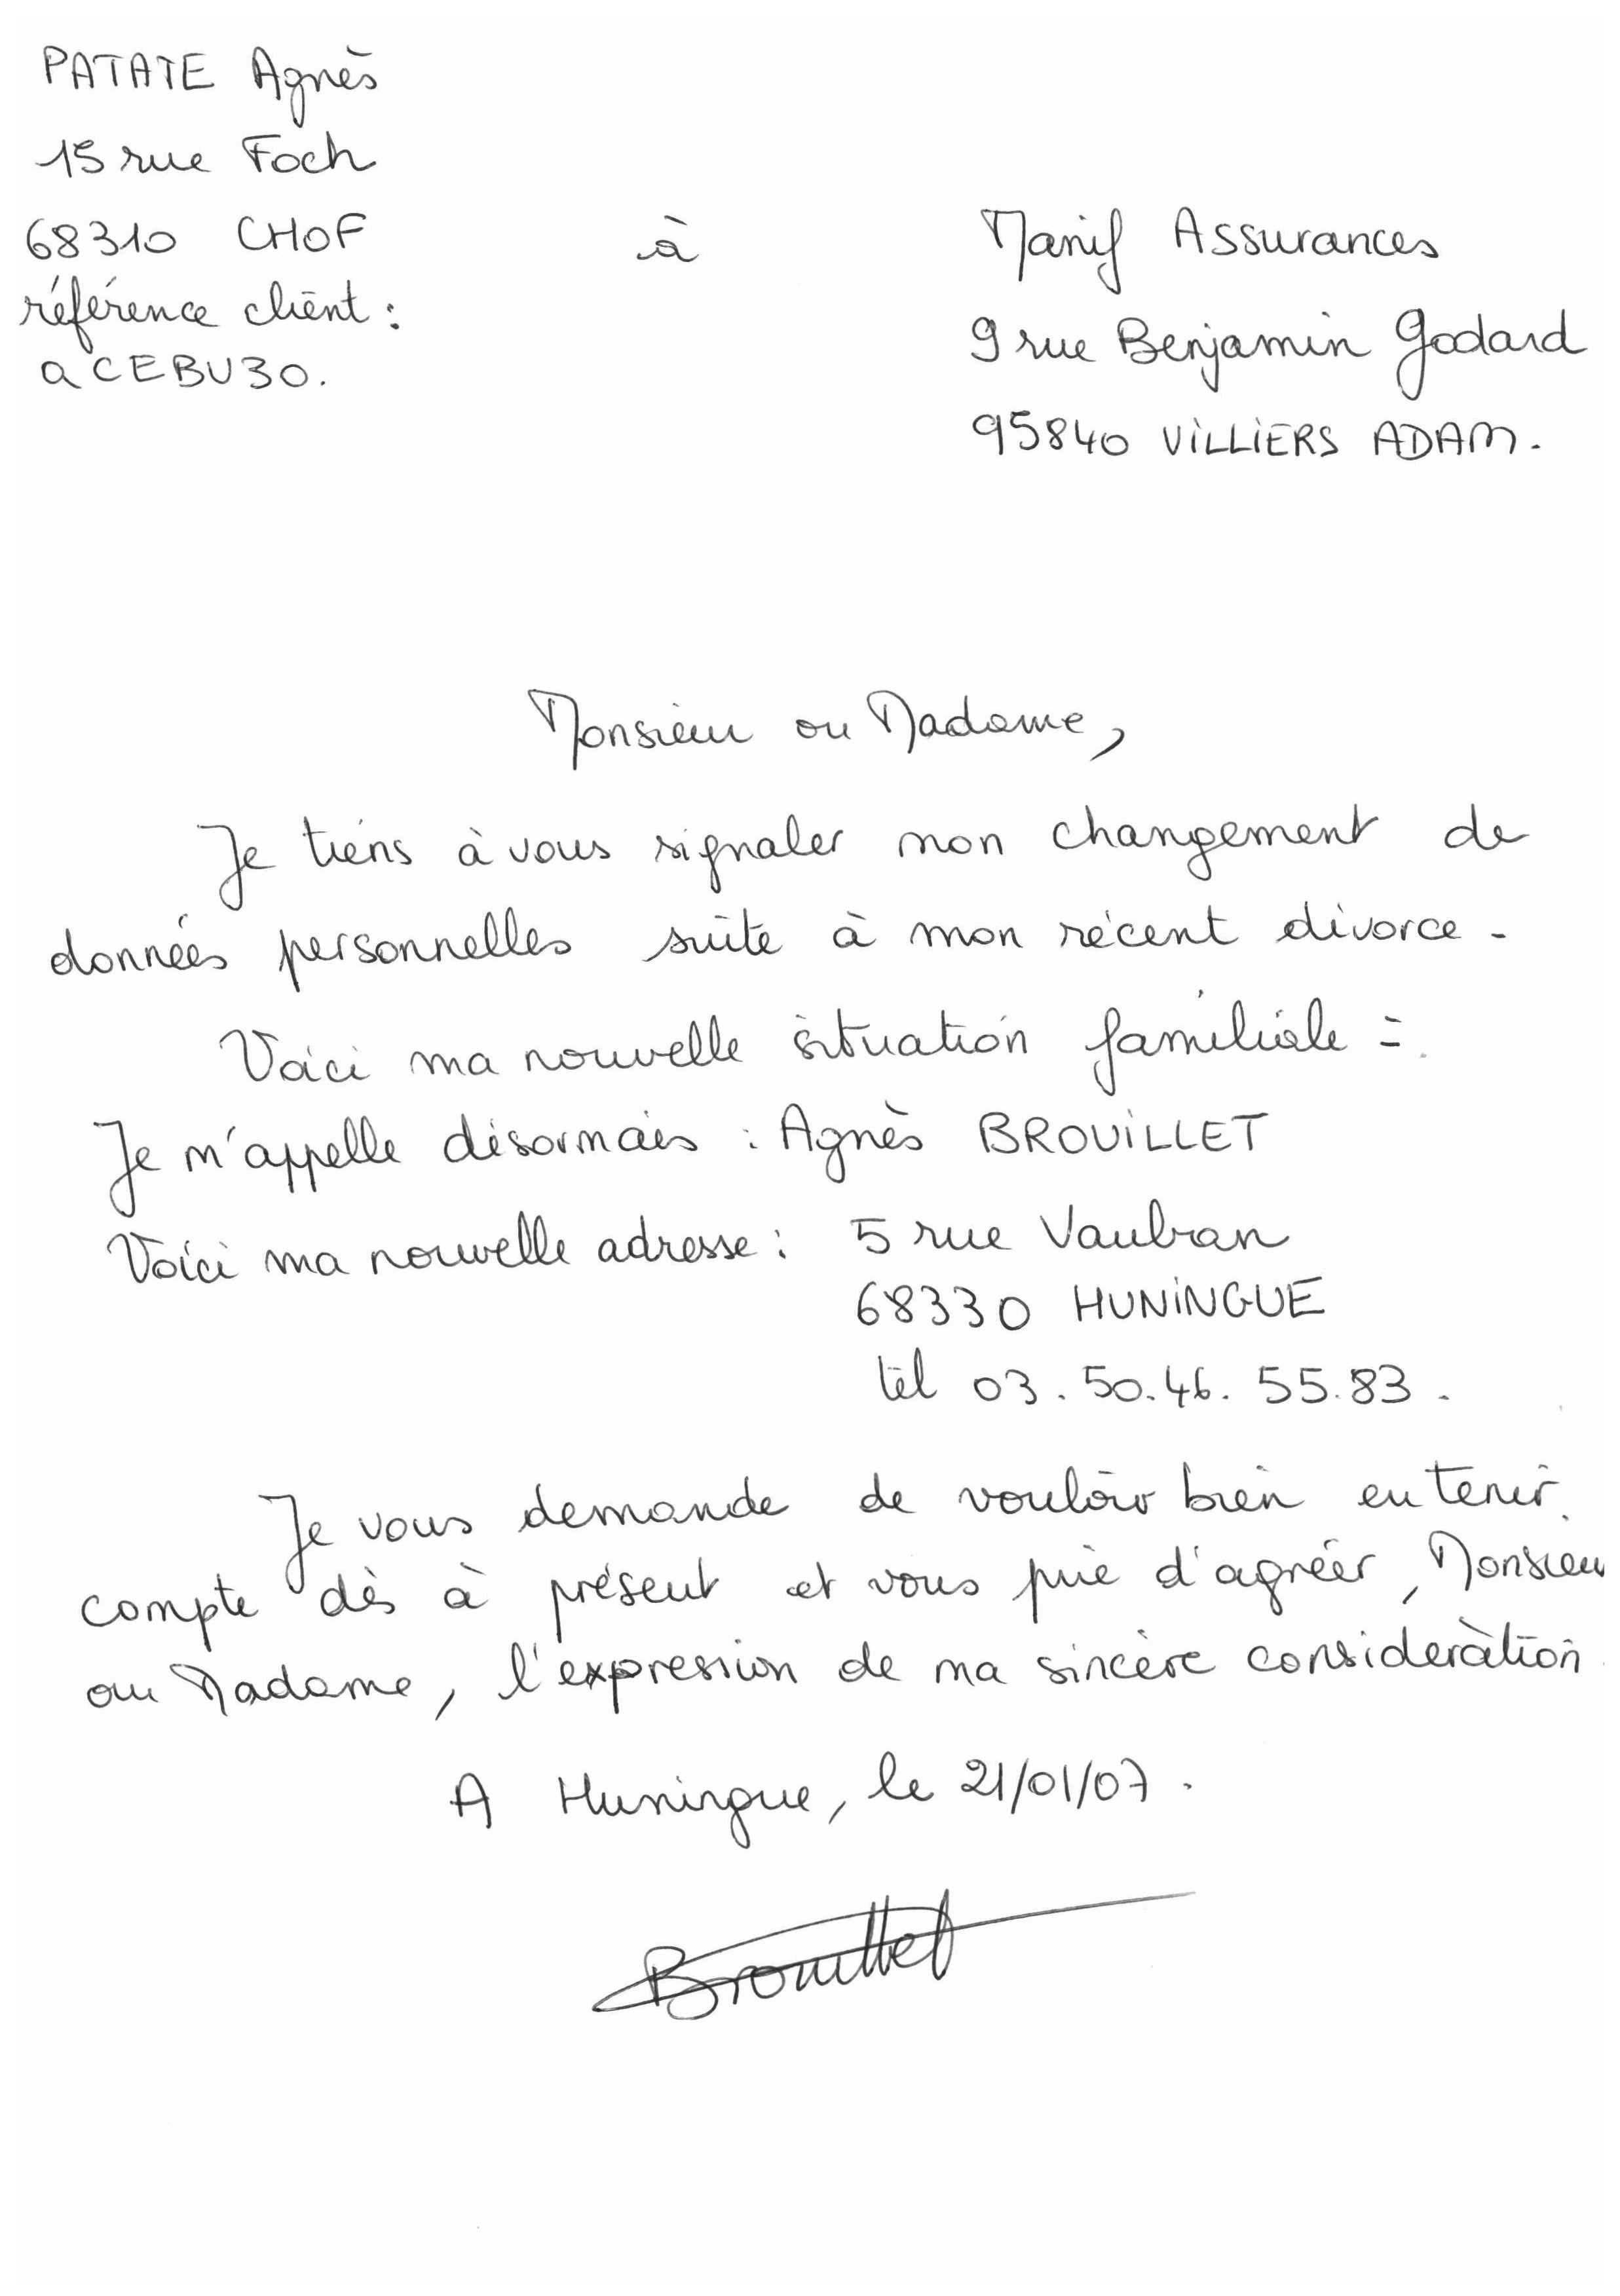 PATATE Agnès
15 rue Foch
68310 CHOF
référence client :
aCEBU30.
à
Manif Assurances
9 rue Benjamin Godard
95840 VILLIERS ADAM.
Monsieur ou Madame,
Je tiens à vous signaler mon changement de
données personnelles suite à mon récent divorce.
Voici ma nouvelle situation familiale :
Je m'appelle désormais : Agnès BROUILLET
Voici ma nouvelle adresse : 5 rue Vauban
68330 HUNINGUE
tél 03.50.46.55.83.
Je vous demande de vouloir bien en tenir
compte dès à présent et vous prie d'agréer, Monsieur
ou Madame, l'expression de ma sincère considération
A Huningue, le 21/01/07.
Brouillet